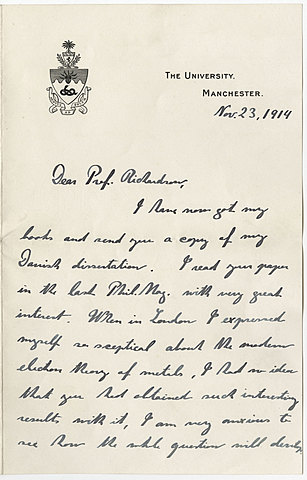 THE UNIVERSITY.
MANCHESTER.
Nov. 23, 1914
Dear Prof. Richardson,
I have now got my
books and send you a copy of my
Danish dissertation. I read your paper
in the last Phil. Mag. with very great
interest. When in London I expressed
myself so sceptical about the modern
electron theory of metals, I had no idea
that you had obtained such interesting
results with it, I am very anxious to
see how the whole question will develop